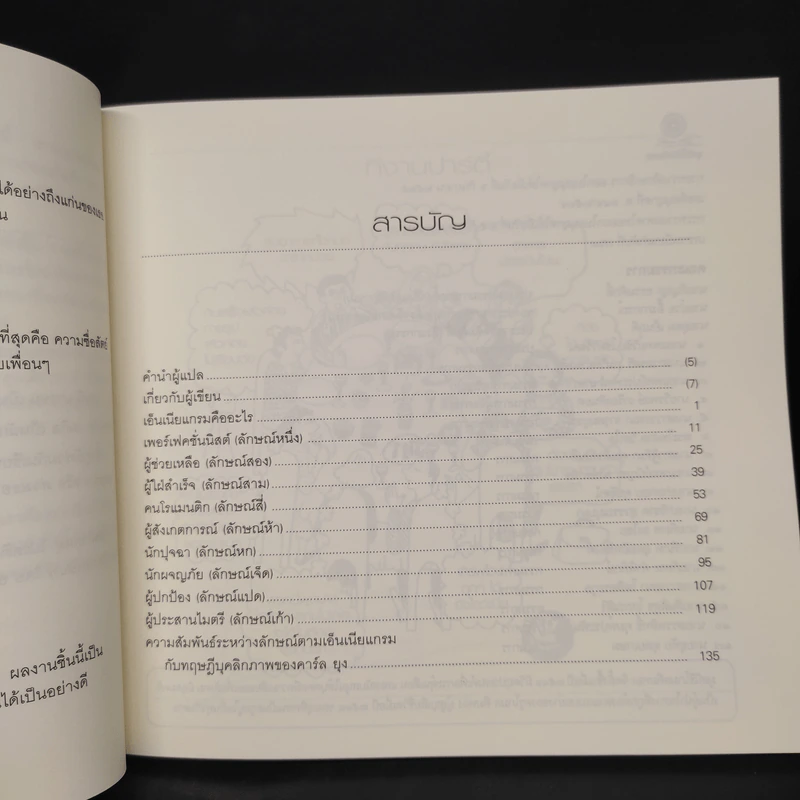 ได้อย่างถึงแก่นของเอน
ที่สุดคือ ความซื่อสัตย์
ยเพื่อนๆ
ผลงานชิ้นนี้เป็น
ได้เป็นอย่างดี
สารบัญ
คำนำผู้แปล (5)
เกี่ยวกับผู้เขียน (7)
เอ็นเนียแกรมคืออะไร 1
เพอร์เฟคชั่นนิสต์ (ลักษณ์หนึ่ง) 11
ผู้ช่วยเหลือ (ลักษณ์สอง) 25
ผู้ใฝ่สำเร็จ (ลักษณ์สาม) 39
คนโรแมนติก (ลักษณ์สี่) 53
ผู้สังเกตการณ์ (ลักษณ์ห้า) 69
นักปุจฉา (ลักษณ์หก) 81
นักผจญภัย (ลักษณ์เจ็ด) 95
ผู้ปกป้อง (ลักษณ์แปด) 107
ผู้ประสานไมตรี (ลักษณ์เก้า) 119
ความสัมพันธ์ระหว่างลักษณ์ตามเอ็นเนียแกรม
กับทฤษฎีบุคลิกภาพของคาร์ล ยุง 135